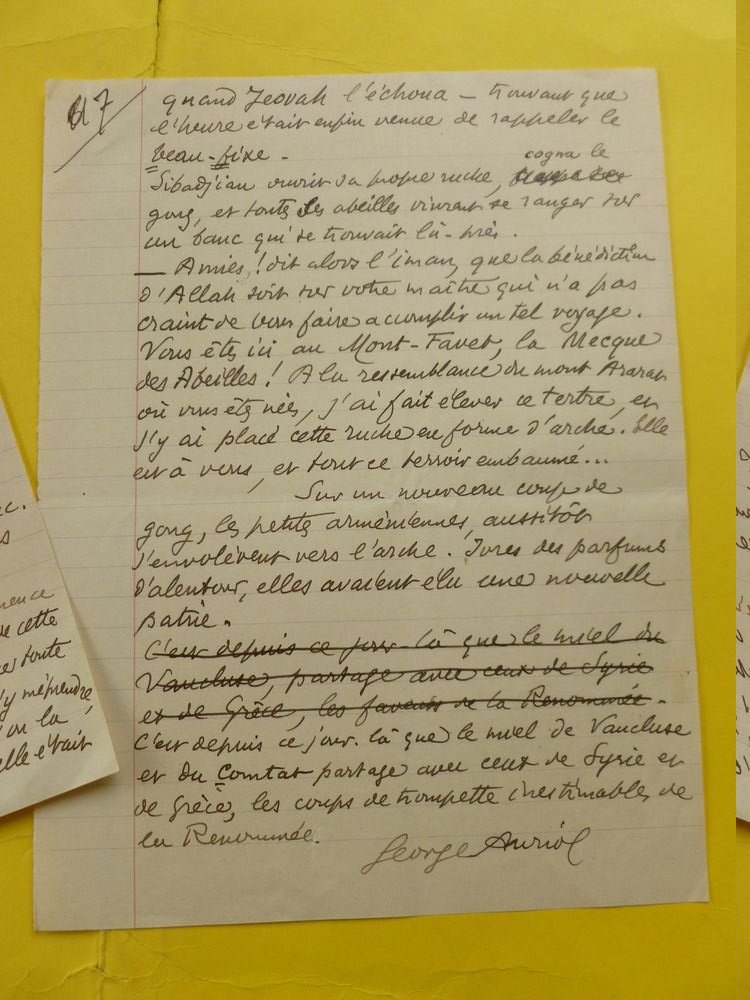 7
quand Jeovah l'échoua — trouvant que
l'heure était enfin venue de rappeler le
beau-fixe.
Sibadjian ouvrit sa propre ruche, cogna le
gong, et toutes les abeilles vinrent se ranger sur
un banc qui se trouvait là-près.
— Amies, ! dit alors l'iman, que la bénédiction
d'Allah soit sur votre maître qui n'a pas
craint de vous faire accomplir un tel voyage.
Vous êtes ici au Mont-Favet, la Mecque
des Abeilles ! A la ressemblance du mont Ararat
où vous êtes nées, j'ai fait élever ce tertre, et
j'y ai placé cette ruche en forme d'arche. Elle
est à vous, et tout ce terroir embaumé...
Sur un nouveau coup de
gong, les petites arméniennes, aussitôt
s'envolèvent vers l'arche. Ivres des parfums
d'alentour, elles avaient élu une nouvelle
patrie.
C'est depuis ce jour-là que le miel du
Vaucluse, partage avec ceux de Syrie
et de Grèce, les faveurs de la Renommée.
C'est depuis ce jour-là que le miel de Vaucluse
et du Comtat partage avec ceux de Syrie et
de Grèce, les coups de trompette inestimables de
la Renommée.
George Auriol
ec.
s
mence
ue cette
er toute
'y méprendre,
'on la
elle était